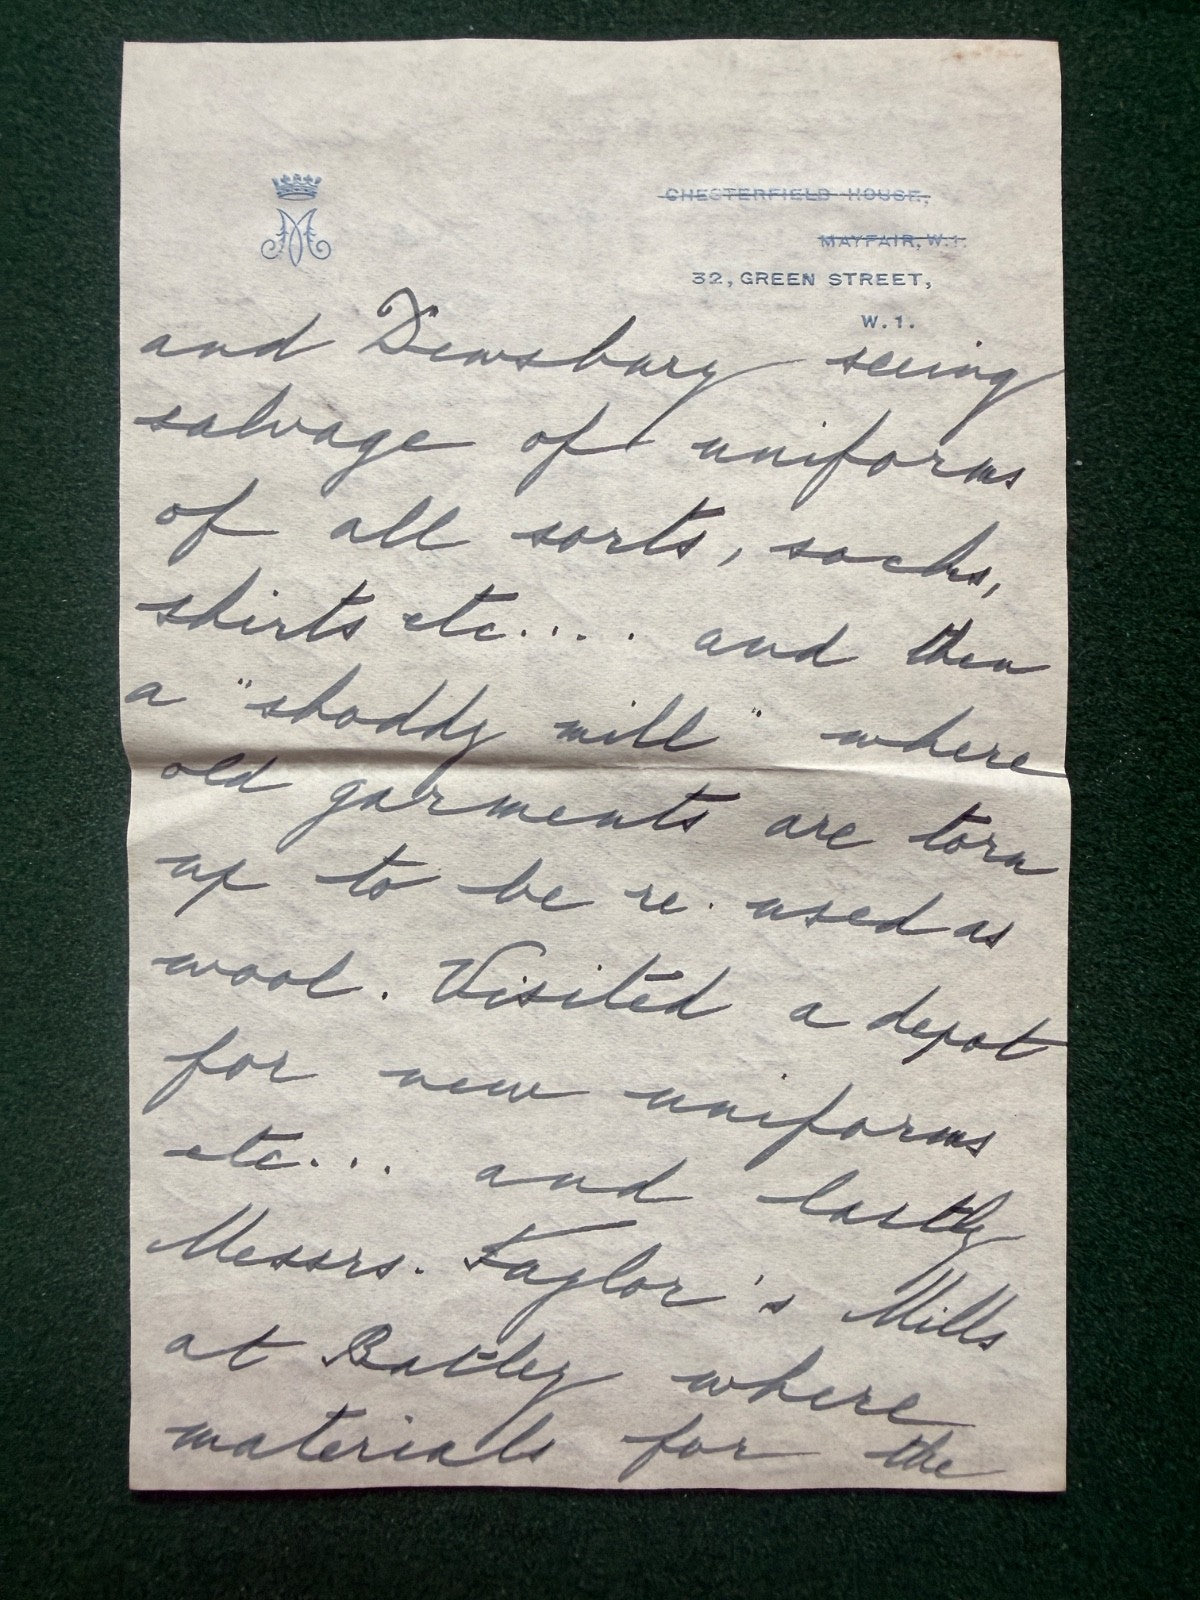 M
CHESTERFIELD HOUSE,
MAYFAIR, W.1.
32, GREEN STREET,
W.1.
and Dewsbury seeing
salvage of uniforms
of all sorts, socks,
shirts etc.... and then
a "shoddy mill" where
old garments are torn
up to be re-used as
wool. Visited a depot
for new uniforms
etc... and lastly
Messrs. Taylor's Mills
at Batley where
materials for the